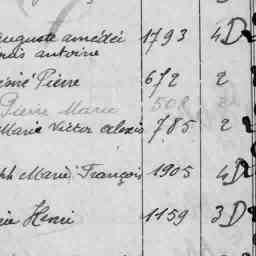 auguste amédéi 1793 4D
antoine
Pierre 672 2
Pierre Marie 508
Marie Victor alexis 785 2
ph Marie François 1905 4D
Henri 1159 3D